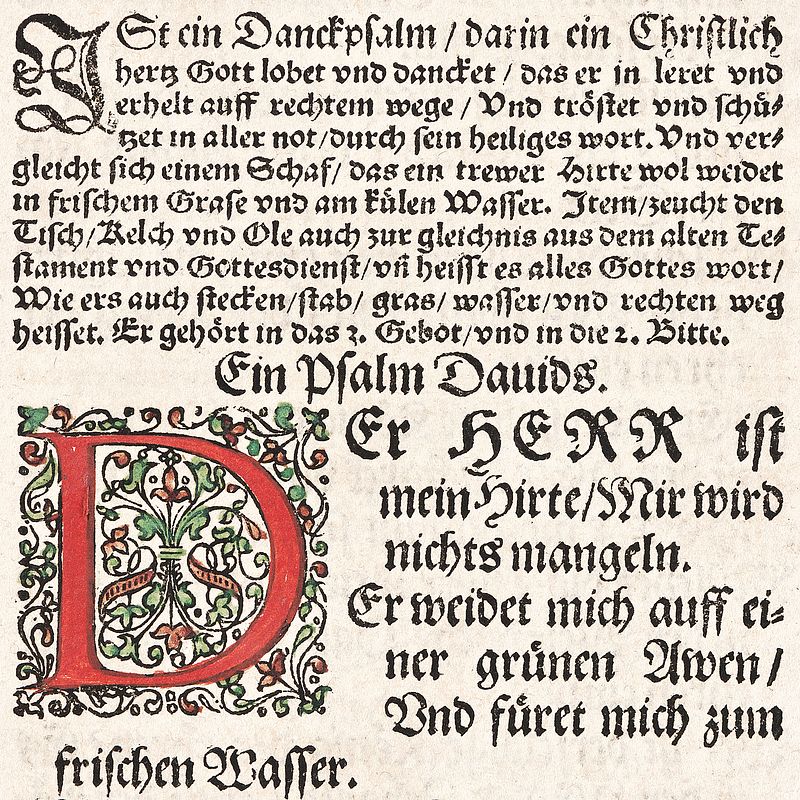 ISt ein Danckpsalm / darin ein Christlich
hertz Gott lobet vnd dancket / das er jn leret vnd
erhelt auff rechtem wege / Vnd tröstet vnd schü⸗
tzet in aller not/durch sein heiliges wort. Vnd ver⸗
gleicht sich einem Schaf/ das ein trewer Hirte wol weidet
in frischem Grase vnd am külen Wasser. Item/zeucht den
Tisch/Kelch vnd Ole auch zur gleichnis aus dem alten Te⸗
stament vnd Gottesdienst/vn̄ heisst es alles Gottes wort/
Wie ers auch stecken/stab/ gras/ wasser/vnd rechten weg
heisset. Er gehört in das 3. Gebot/vnd in die 2. Bitte.
Ein Psalm Dauids.
DEr HERR ist
mein Hirte/Mir wird
nichts mangeln.
Er weidet mich auff ei⸗
ner grünen Awen/
Vnd füret mich zum
frischen Wasser.